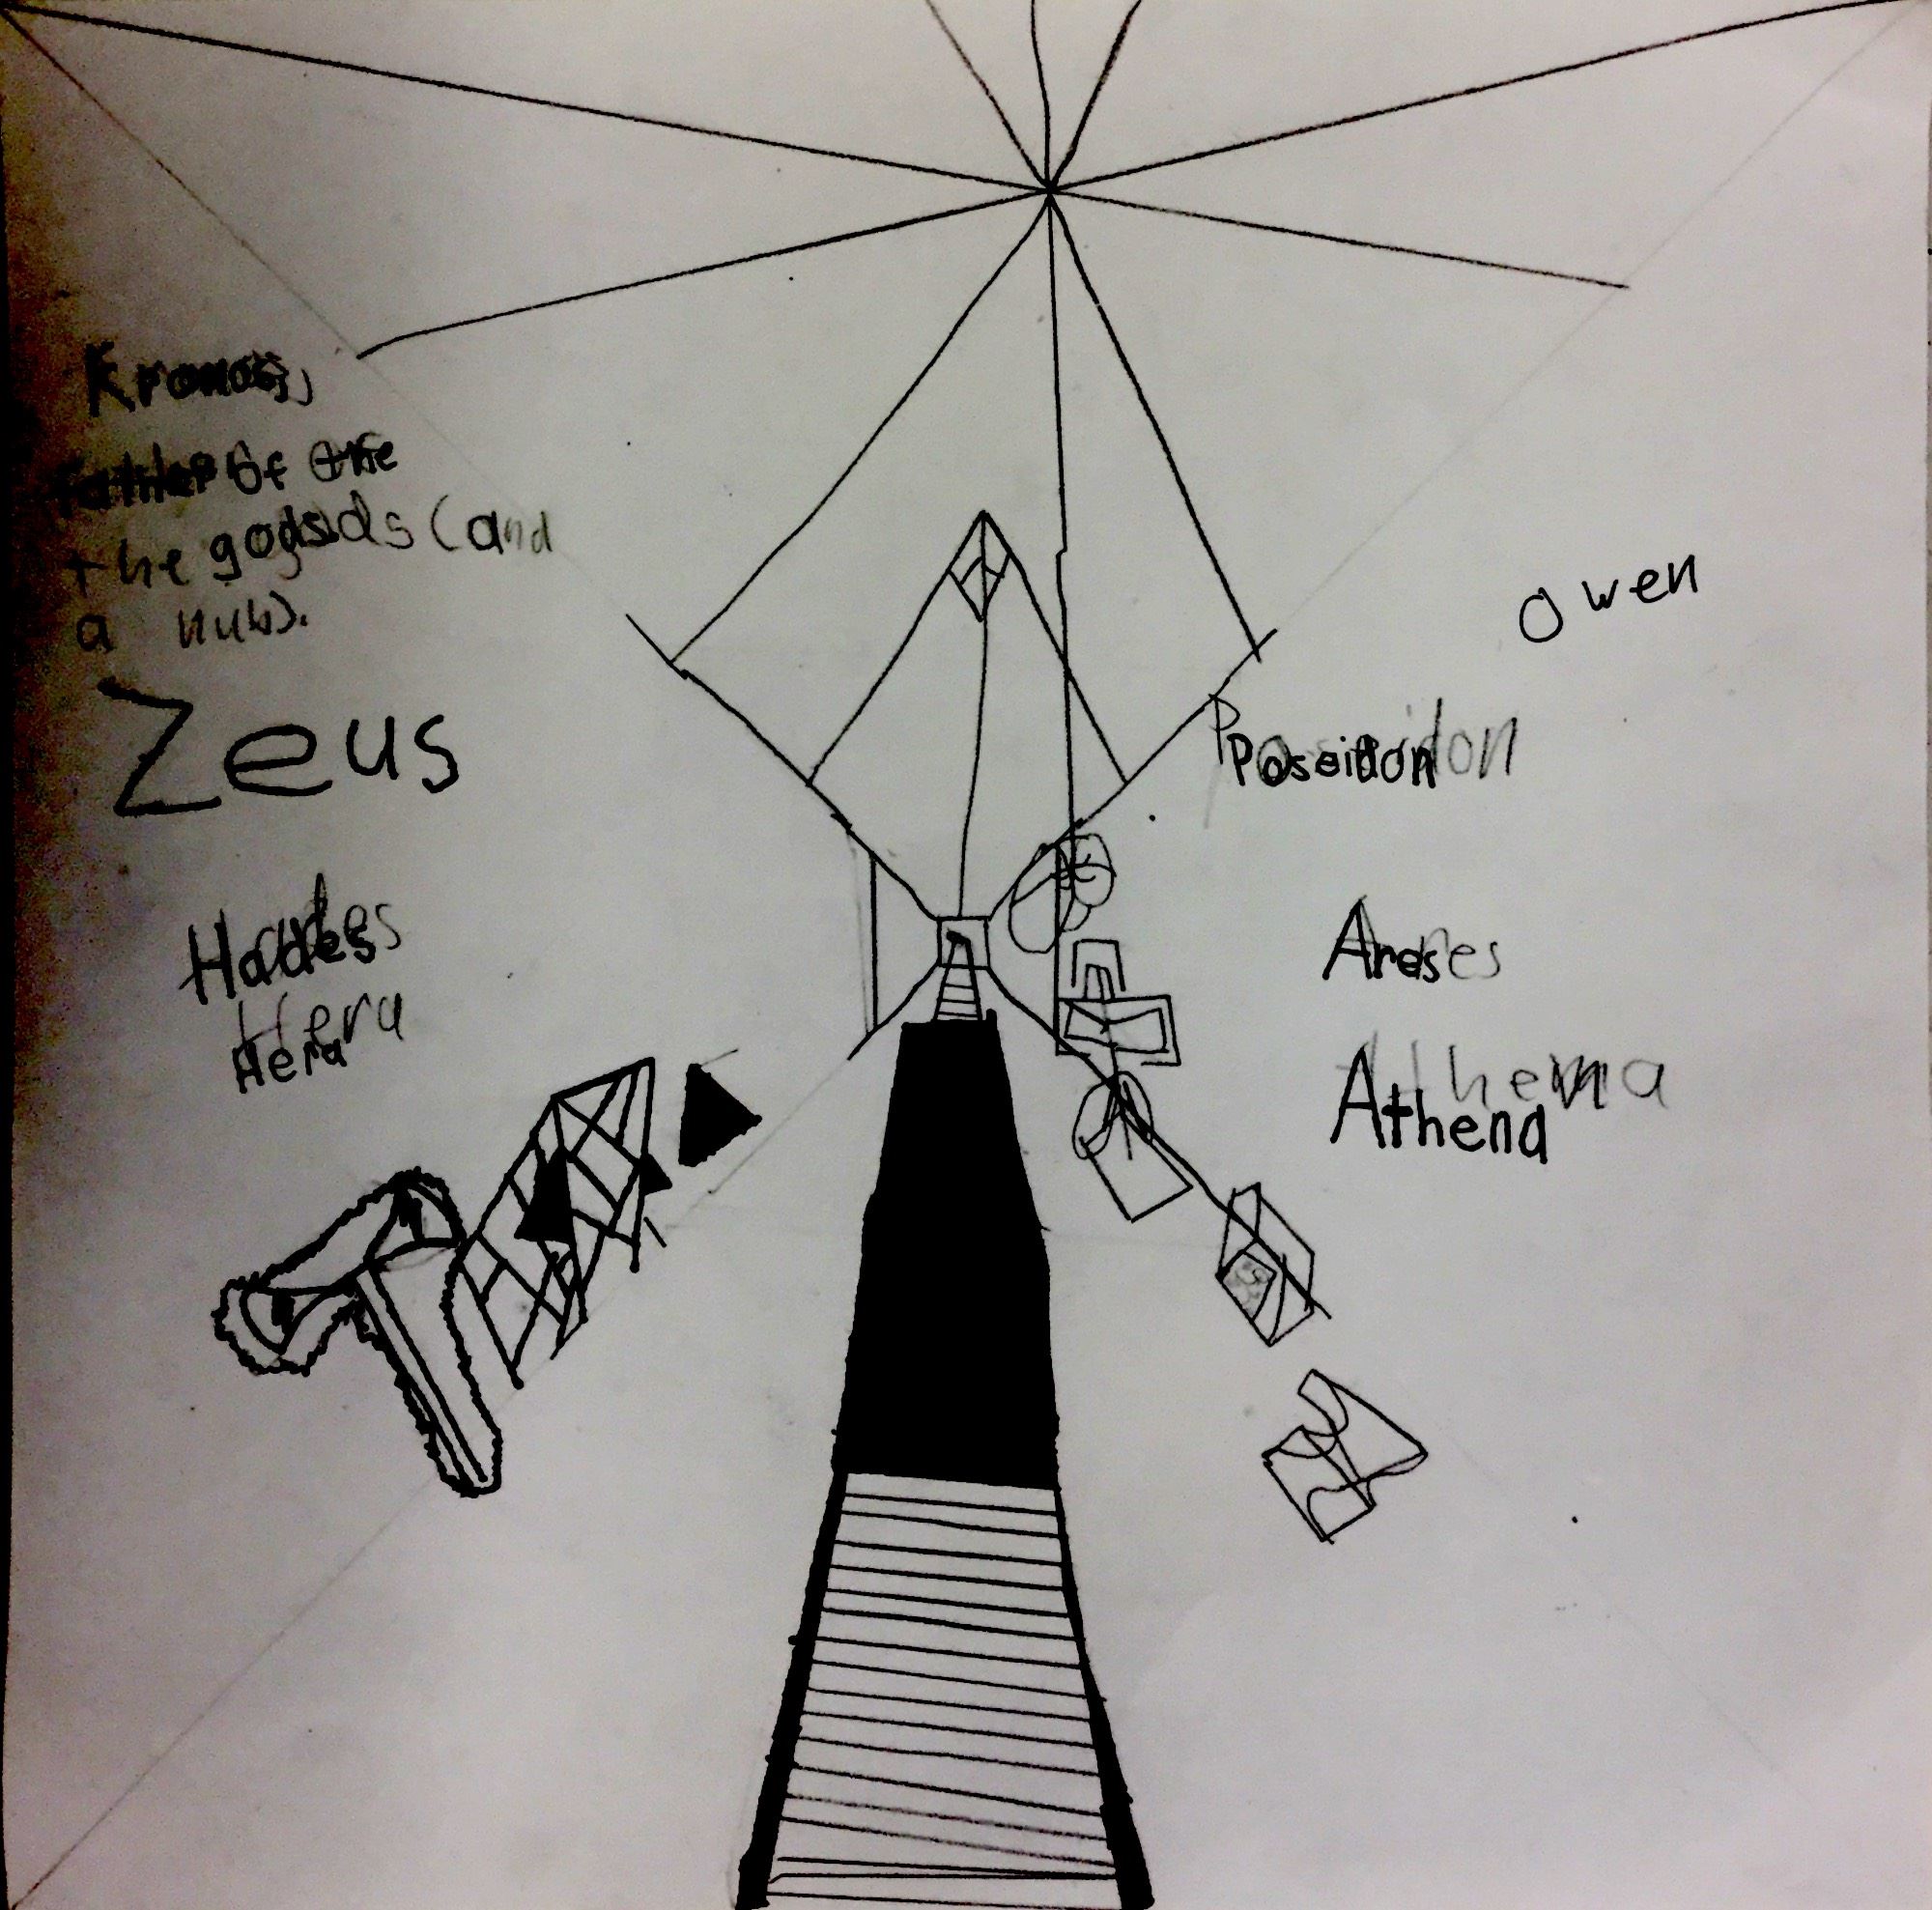 Kronos,
father of the
the gods (and
a nub).
Zeus
Hades
Hera
Owen
Poseidon
Ares
Athena